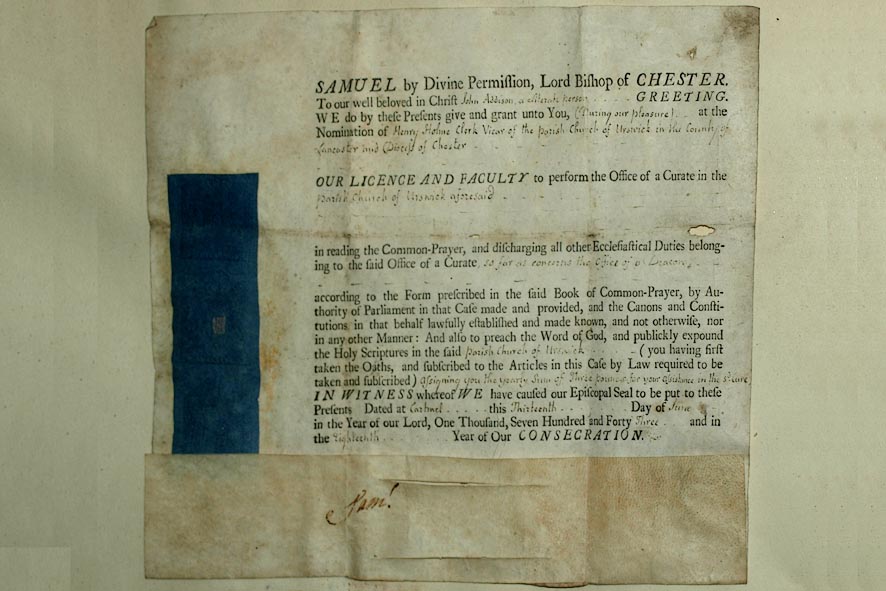 SAMUEL by Divine Permiſſion, Lord Biſhop of CHESTER.
To our well beloved in Chriſt John Addison, a literate Person GREETING.
WE do by theſe Preſents give and grant unto You, (During our pleasure) at the
Nomination of Henry Holme Clerk Vicar of the parish Church of Urswick in the County of
Lancaster and Diocess of Chester
OUR LICENCE AND FACULTY to perform the Office of a Curate in the
parish Church of Urswick aforesaid
in reading the Common-Prayer, and diſcharging all other Eccleſiaſtical Duties belong-
ing to the ſaid Office of a Curate so far as concerns the Office of a Deacon,
according to the Form preſcribed in the ſaid Book of Common-Prayer, by Au-
thority of Parliament in that Caſe made and provided, and the Canons and Conſti-
tutions in that behalf lawfully eſtabliſhed and made known, and not otherwiſe, nor
in any other Manner: And alſo to preach the Word of God, and publickly expound
the Holy Scriptures in the ſaid parish Church of Urswick (you having firſt
taken the Oaths, and ſubſcribed to the Articles in this Caſe by Law required to be
taken and ſubſcribed) assigning you the yearly Sum of Three pounds for your assistance in the
IN WITNESS whereof WE have cauſed our Epiſcopal Seal to be put to theſe
Preſents Dated at Cartmel this Thirteenth Day of June
in the Year of our Lord, One Thouſand, Seven Hundred and Forty Three and in
the Eighteenth Year of Our CONSECRATION.
Sam!